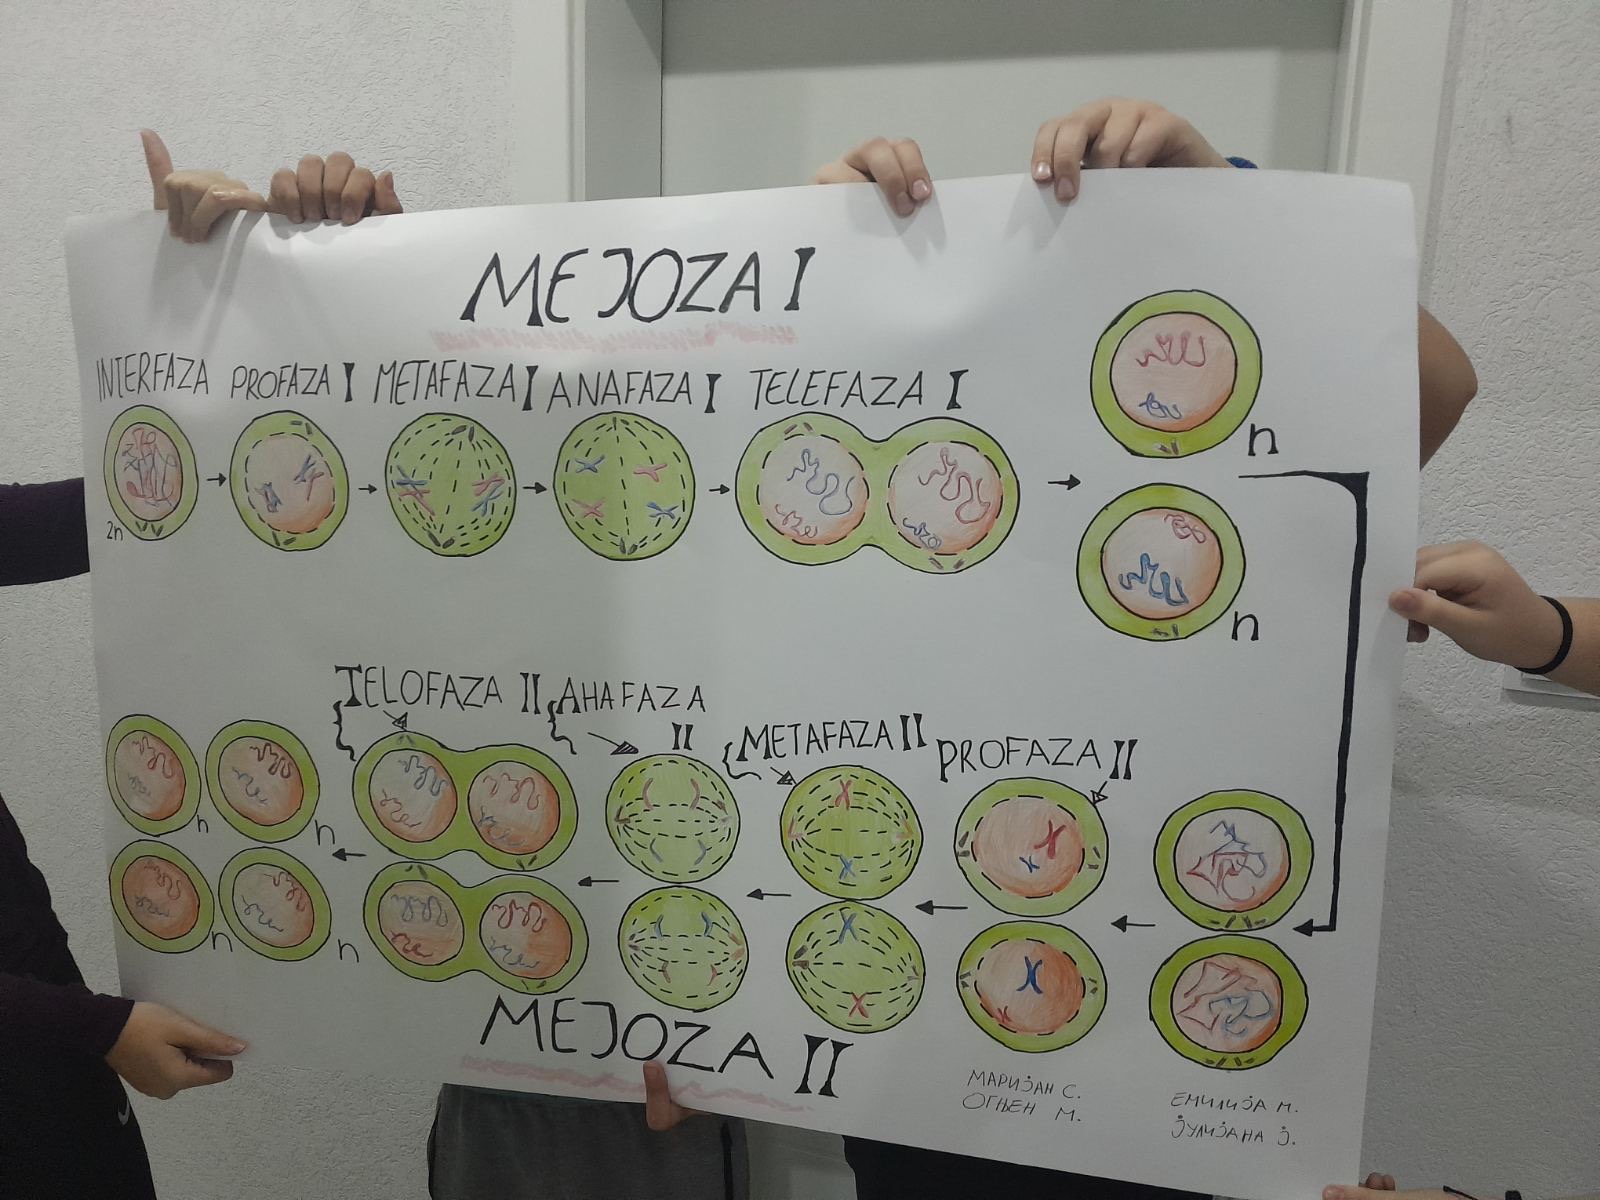 MEJOZA I
INTERFAZA PROFAZA I METAFAZA I ANAFAZA I TELEFAZA I
2n
n
n
TELOFAZA II AHAFAZA
II
METAFAZA II
PROFAZA II
n
n
n
n
MEJOZA II
МАРИЈАН С.
ОГЊЕН М.
ЕМИЛИЈА М.
ЈУЛИЈАНА Ј.